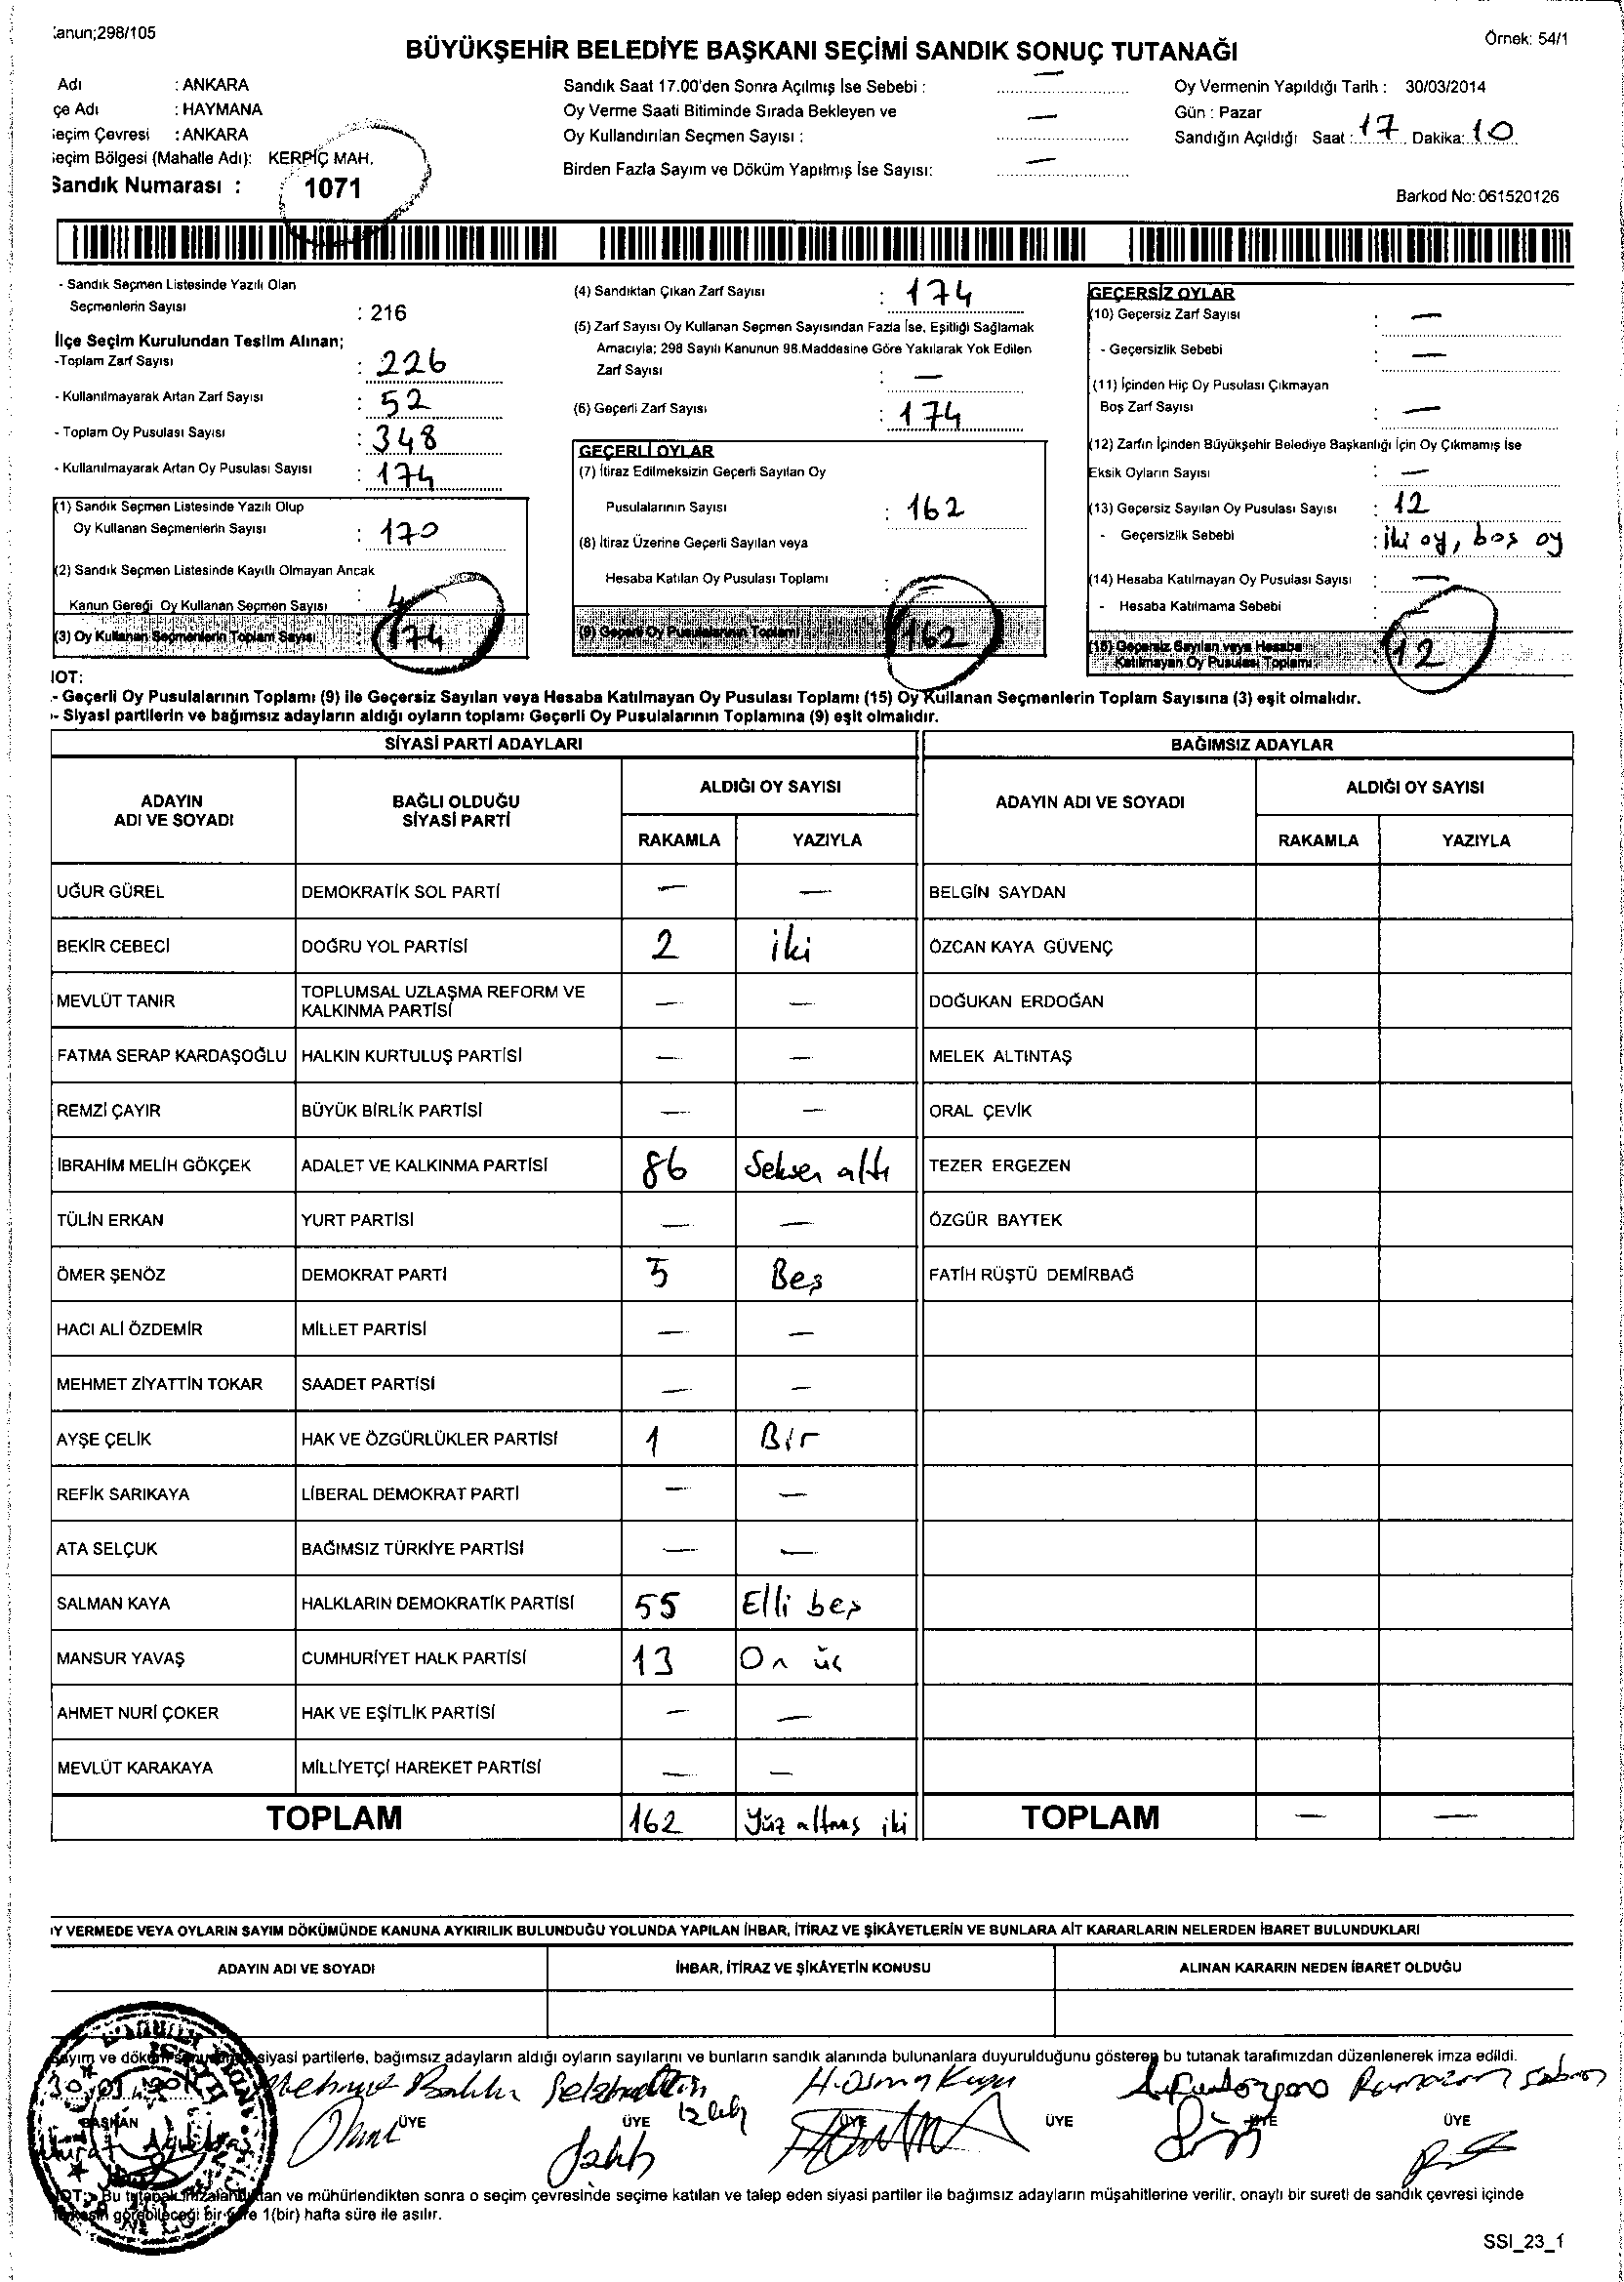 anun;298/105
Örnek: 54/1
BÜYÜKŞEHİR BELEDİYE BAŞKANI SEÇİMİ SANDIK SONUÇ TUTANAĞI
Adı : ANKARA
çe Adı : HAYMANA
eçim Çevresi : ANKARA
eçim Bölgesi (Mahalle Adı): KERPİÇ MAH.
Sandık Numarası : 1071
Sandık Saat 17.00'den Sonra Açılmış İse Sebebi : —
Oy Verme Saati Bitiminde Sırada Bekleyen ve
Oy Kullandırılan Seçmen Sayısı : —
Birden Fazla Sayım ve Döküm Yapılmış İse Sayısı: —
Oy Vermenin Yapıldığı Tarih : 30/03/2014
Gün : Pazar
Sandığın Açıldığı Saat : 17 Dakika: 10
Barkod No: 061520126
- Sandık Seçmen Listesinde Yazılı Olan
Seçmenlerin Sayısı : 216
İlçe Seçim Kurulundan Teslim Alınan;
-Toplam Zarf Sayısı : 226
- Kullanılmayarak Artan Zarf Sayısı : 52
- Toplam Oy Pusulası Sayısı : 348
- Kullanılmayarak Artan Oy Pusulası Sayısı : 174
(1) Sandık Seçmen Listesinde Yazılı Olup
Oy Kullanan Seçmenlerin Sayısı : 170
(2) Sandık Seçmen Listesinde Kayıtlı Olmayan Ancak
Kanun Gereği Oy Kullanan Seçmen Sayısı : 4
(3) Oy Kullanan Seçmenlerin Toplam Sayısı : 174
(4) Sandıktan Çıkan Zarf Sayısı : 174
(5) Zarf Sayısı Oy Kullanan Seçmen Sayısından Fazla İse, Eşitliği Sağlamak
Amacıyla; 298 Sayılı Kanunun 98.Maddesine Göre Yakılarak Yok Edilen
Zarf Sayısı : —
(6) Geçerli Zarf Sayısı : 174
GEÇERLİ OYLAR
(7) İtiraz Edilmeksizin Geçerli Sayılan Oy
Pusulalarının Sayısı : 162
(8) İtiraz Üzerine Geçerli Sayılan veya
Hesaba Katılan Oy Pusulası Toplamı :
(9) Geçerli Oy Pusulalarının Toplamı : 162
GEÇERSİZ OYLAR
(10) Geçersiz Zarf Sayısı : —
- Geçersizlik Sebebi : —
(11) İçinden Hiç Oy Pusulası Çıkmayan
Boş Zarf Sayısı : —
(12) Zarfın İçinden Büyükşehir Belediye Başkanlığı İçin Oy Çıkmamış İse
Eksik Oyların Sayısı : —
(13) Geçersiz Sayılan Oy Pusulası Sayısı : 12
- Geçersizlik Sebebi : iki oy, boş oy
(14) Hesaba Katılmayan Oy Pusulası Sayısı : —
- Hesaba Katılmama Sebebi :
(15) Geçersiz Sayılan veya Hesaba
Katılmayan Oy Pusulası Toplamı : 12
NOT:
- Geçerli Oy Pusulalarının Toplamı (9) ile Geçersiz Sayılan veya Hesaba Katılmayan Oy Pusulası Toplamı (15) Oy Kullanan Seçmenlerin Toplam Sayısına (3) eşit olmalıdır.
- Siyasi partilerin ve bağımsız adayların aldığı oyların toplamı Geçerli Oy Pusulalarının Toplamına (9) eşit olmalıdır.
SİYASİ PARTİ ADAYLARI BAĞIMSIZ ADAYLAR
ADAYIN ADI VE SOYADI BAĞLI OLDUĞU SİYASİ PARTİ ALDIĞI OY SAYISI ADAYIN ADI VE SOYADI ALDIĞI OY SAYISI
RAKAMLA YAZIYLA RAKAMLA YAZIYLA
UĞUR GÜREL DEMOKRATİK SOL PARTİ — — BELGİN SAYDAN
BEKİR CEBECİ DOĞRU YOL PARTİSİ 2 iki ÖZCAN KAYA GÜVENÇ
MEVLÜT TANIR TOPLUMSAL UZLAŞMA REFORM VE KALKINMA PARTİSİ — — DOĞUKAN ERDOĞAN
FATMA SERAP KARDAŞOĞLU HALKIN KURTULUŞ PARTİSİ — — MELEK ALTINTAŞ
REMZİ ÇAYIR BÜYÜK BİRLİK PARTİSİ — — ORAL ÇEVİK
İBRAHİM MELİH GÖKÇEK ADALET VE KALKINMA PARTİSİ 86 Seksen altı TEZER ERGEZEN
TÜLİN ERKAN YURT PARTİSİ — — ÖZGÜR BAYTEK
ÖMER ŞENÖZ DEMOKRAT PARTİ 5 Beş FATİH RÜŞTÜ DEMİRBAĞ
HACI ALİ ÖZDEMİR MİLLET PARTİSİ — —
MEHMET ZİYATTİN TOKAR SAADET PARTİSİ — —
AYŞE ÇELİK HAK VE ÖZGÜRLÜKLER PARTİSİ 1 Bir
REFİK SARIKAYA LİBERAL DEMOKRAT PARTİ — —
ATA SELÇUK BAĞIMSIZ TÜRKİYE PARTİSİ — —
SALMAN KAYA HALKLARIN DEMOKRATİK PARTİSİ 55 Elli beş
MANSUR YAVAŞ CUMHURİYET HALK PARTİSİ 13 On üç
AHMET NURİ ÇOKER HAK VE EŞİTLİK PARTİSİ — —
MEVLÜT KARAKAYA MİLLİYETÇİ HAREKET PARTİSİ — —
TOPLAM 162 Yüz altmış iki TOPLAM — —
Y VERMEDE VEYA OYLARIN SAYIM DÖKÜMÜNDE KANUNA AYKIRILIK BULUNDUĞU YOLUNDA YAPILAN İHBAR, İTİRAZ VE ŞİKÂYETLERİN VE BUNLARA AİT KARARLARIN NELERDEN İBARET BULUNDUKLARI
ADAYIN ADI VE SOYADI İHBAR, İTİRAZ VE ŞİKÂYETİN KONUSU ALINAN KARARIN NEDEN İBARET OLDUĞU
siyasi partilerle, bağımsız adayların aldığı oyların sayılarını ve bunların sandık alanında bulunanlara duyurulduğunu gösteren bu tutanak tarafımızdan düzenlenerek imza edildi.
Mehmet Selahattin H. Ramazan
BAŞKAN ÜYE ÜYE ÜYE ÜYE ÜYE ÜYE
NOT: Bu tutanak imzalandıktan ve mühürlendikten sonra o seçim çevresinde seçime katılan ve talep eden siyasi partiler ile bağımsız adayların müşahitlerine verilir, onaylı bir sureti de sandık çevresi içinde
görebileceği bir yere 1(bir) hafta süre ile asılır.
SSI_23_1